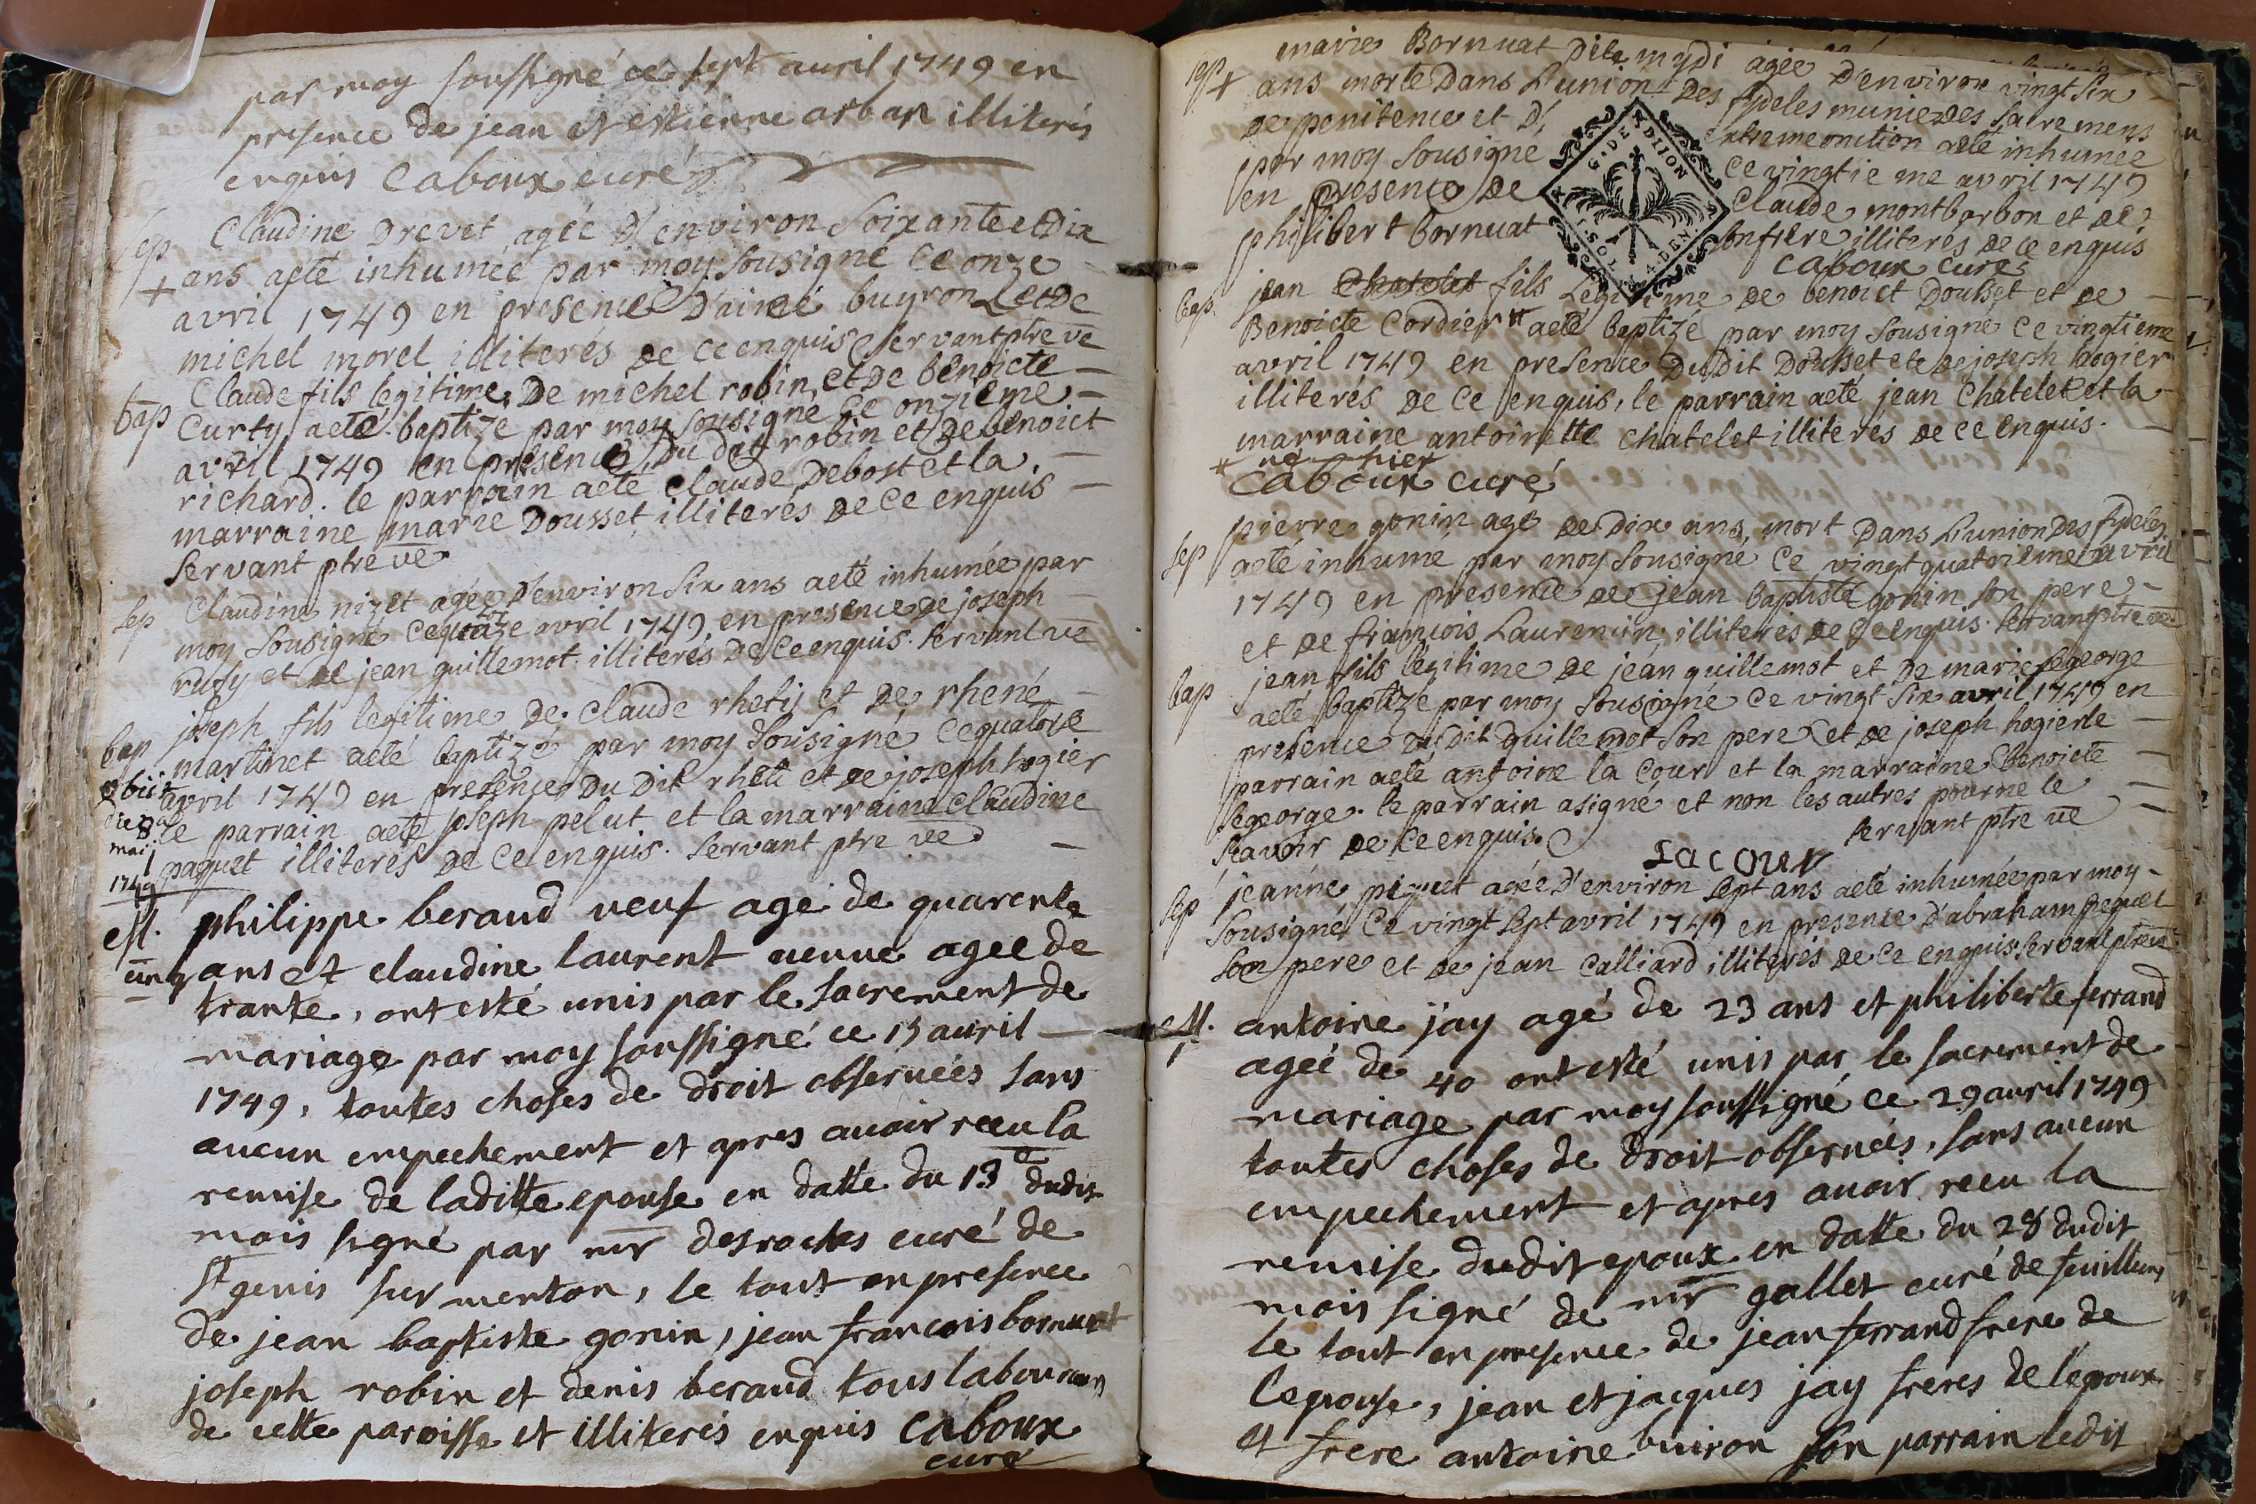 par moy soussigné ce sept auril 1749 en
presence de jean et estienne arban illiterés
enquis Caboux curé
Sep Claudine Drevet agée d'environ Soixante et Dix
+ ans aeté inhumée par moy Sousigné Ce onze
avril 1749 en presence D'aimé buyron et de
michel morel illiterés de ce enquis Servant ptre ve
bap Claude fils legitime De michel robin et De benoicte
Curty aeté baptizé par moy Sousigné Ce onzieme
avril 1749 en presence Du dit robin et De benoict
richard. le parrain aeté Claude Debost et la
marraine marie Dousset illiterés de ce enquis
Servant ptre ve
Sep Claudine nizet agée d'environ Six ans aeté inhumée par
moy Sousigné ce avril 1749 en presence de joseph
rufy et de jean guillemot illiterés de ce enquis. Servant ve
bap joseph fils legitime De Claude rhetis et De rhené
martinet aeté baptizé par moy Sousigné Ce quatorze
obiit avril 1749 en presence Du Dit rheti et de joseph hogier
die 8a le parrain aeté joseph pelut et la marraine Claudine
mai paquet illiterés de ce enquis. Servant ptre ve
1749
M. philippe beraud veuf agé de quarente
cinq ans et claudine laurent veuve agee de
trante, ont esté unis par le sacrement de
mariage par moy soussigné ce 15 auril
1749, toutes choses de droit obseruées sans
aucun empechement et apres auoir receu la
remise de laditte epouse en datte du 13e dudit
mois signé par mr desroches curé de
st genis sur menton, le tout en presence
de jean baptiste gonin, jean francois bornuat
joseph robin et denis beraud tous laboureurs
de cette paroisse et illiterés enquis Caboux
curé
sep marie Bornuat Dite mydi agée D'environ vingt Six
+ ans morte Dans L'union Des fydeles munie des Sacremens
de penitence et d' extreme onction aeté inhumée
par moy Sousigné Ce vingtie me avril 1749
en Presence De Claude montbarbon et de
philibert bornuat Son frere illiterés de ce enquis
Caboux curé
G. DE DIION
SOL. 4. DEN.
bap. jean Chatelet fils Legitime de benoict Dousset et de
Benoicte Cordier aeté baptizé par moy Sousigné Ce vingtieme
avril 1749 en presence Du Dit Dousset et de joseph hogier
illiterés de ce enquis, le parrain aeté jean Chatelet et la
marraine antoinette Chatelet illiteres de ce enquis.
+ né hier
Caboux curé
Sep pierre gonin agé de dix ans, mort Dans L'union Des fydeles
aeté inhumé par moy Sousigné Ce vingt quatrieme avril
1749 en presence de jean baptiste gonin Son pere
et de francois Laurencin illiterés de ce enquis. Servant ptre ve
bap jean fils légitime de jean guillemot et De marie legeorge
aeté baptizé par moy Sousigné Ce vingt Six avril 1749 en
presence du dit guillemot Son pere et de joseph hogier le
parrain aeté antoine la Cour et la marraine benoicte
legeorge. le parrain asigné et non les autres pour ne le
Scavoir de ce enquis. Servant ptre ve
Lacour
Sep jeanne pequet agée D'environ Sept ans aeté inhumée par moy
Sousigné Ce vingt Sept avril 1749 en presence d'abraham pequet
Son pere et de jean Calliard illiterés de ce enquis Servant ptre ve
M. antoine jay agé de 23 ans et philiberte ferrand
ageé de 40 ont esté unis par le sacrement de
mariage par moy soussigné ce 29 auril 1749
toutes choses de droit obseruées, sans aucun
empechement et apres auoir receu la
remise dudit epoux en datte du 28 dudit
mois signé de mr gallet curé de feuillens
le tout en presence de jean ferrand frere de
l'epouse, jean et jacques jay freres de l'epoux
et frere antoine buiron son parrain ledit